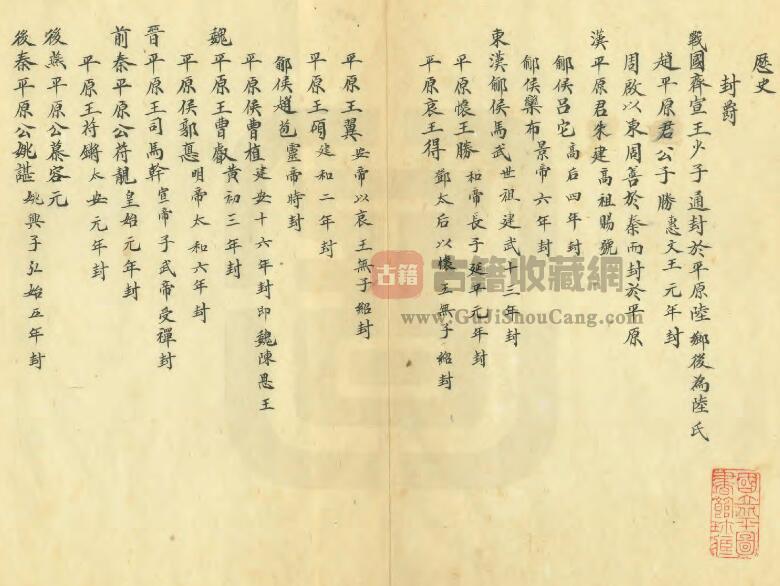 歷史
封爵
戰國齊宣王少子通封於平原陸鄉後為陸氏
趙平原君公子勝惠文王元年封
周啟以東周善於秦而封於平原
漢平原君朱建高祖賜號
鄃侯呂它高后四年封
鄃侯欒布景帝六年封
東漢鄃侯馬武世祖建武十三年封
平原懷王勝和帝長子延平元年封
平原哀王得鄧太后以懷王無子紹封
平原王翼安帝以哀王無子紹封
平原王碩建和二年封
鄃侯趙苞靈帝時封
平原侯曹植建安十六年封即魏陳思王
魏平原王曹叡黃初三年封
平原侯郭悳明帝太和六年封
晉平原王司馬幹宣帝子武帝受禪封
前秦平原公苻靚皇始元年封
平原王苻鏘太安元年封
後燕平原公慕容元
後秦平原公姚諶姚興子弘始五年封
古籍
古籍收藏網
www.GuJiShouCang.com